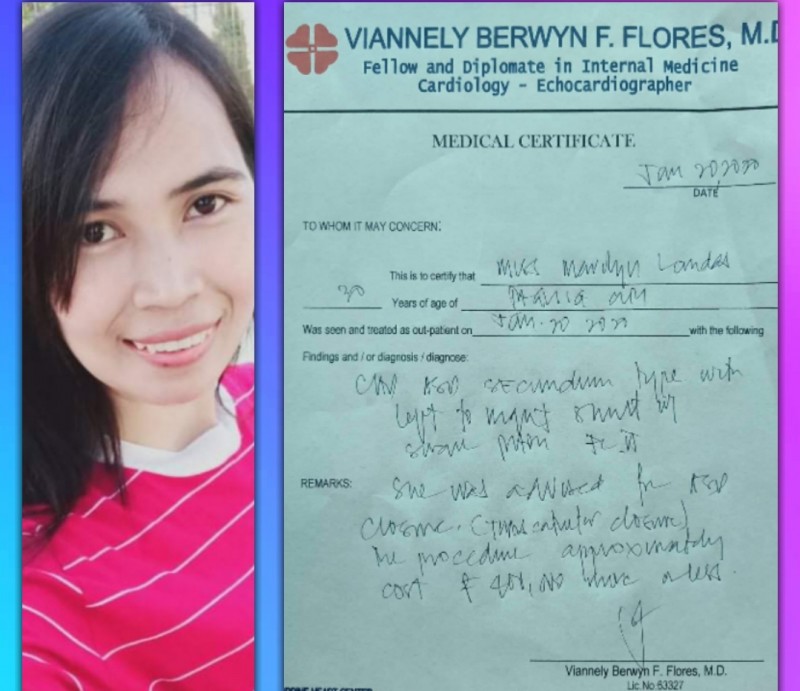 VIANNELY BERWYN F. FLORES, M.D
Fellow and Diplomate in Internal Medicine
Cardiology - Echocardiographer
MEDICAL CERTIFICATE
Jan 20, 2020
DATE
TO WHOM IT MAY CONCERN:
This is to certify that Miss Marilyn Landas
30 Years of age of
Was seen and treated as out-patient on Jan. 20 with the following
Findings and / or diagnosis / diagnose:
ASD secundum type with
left to right shunt
REMARKS: She was advised for ASD
closure. (transcatheter closure)
The procedure approximately
cost more or less.
Viannely Berwyn F. Flores, M.D.
Lic No 63327
HEART CENTER